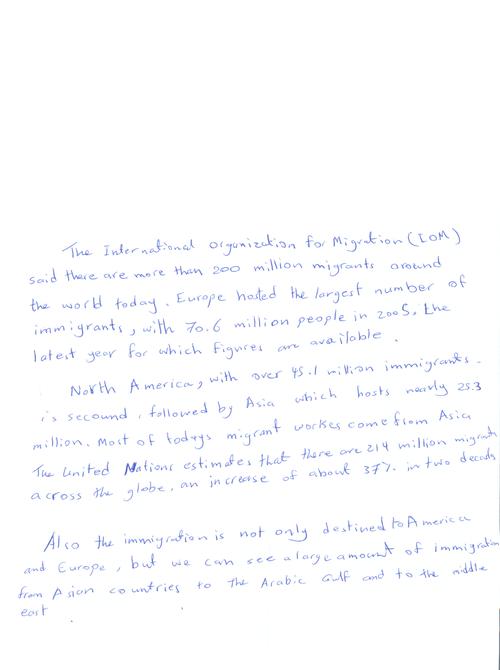 The International organization for Migration (IOM)
said there are more than 200 million migrants around
the world today. Europe hosted the largest number of
immigrants, with 70.6 million people in 2005, the
latest year for which figures are available.
North America, with over 45.1 million immigrants.
is secound, followed by Asia which hosts nearly 25.3
million. Most of todays migrant workes come from Asia
The United Nations estimates that there are 214 million migrants
across the globe, an increase of about 37% in two decads
Also the immigration is not only destined to America
and Europe, but we can see a large amount of immigration
from Asian countries to the Arabic Gulf and to the middle
east.